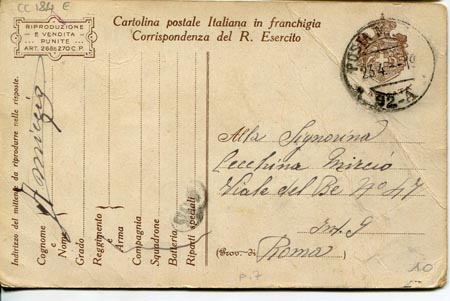 CC 184 E
RIPRODUZIONE
E VENDITA
PUNITE
ART. 268 E 270 C.P.
Cartolina postale Italiana in franchigia
Corrispondenza del R. Esercito
POSTA
23.4
92-A
Indirizzo del mittente da riprodurre nelle risposte.
Cognome
e
Nome
Grado
Reggimento
e
Arma
Compagnia
Squadrone
Batteria
Riparti speciali
Alla Signorina
Cecchina
Viale del Re N° 47
Int. 9
(Prov. di) Roma)
p. 7